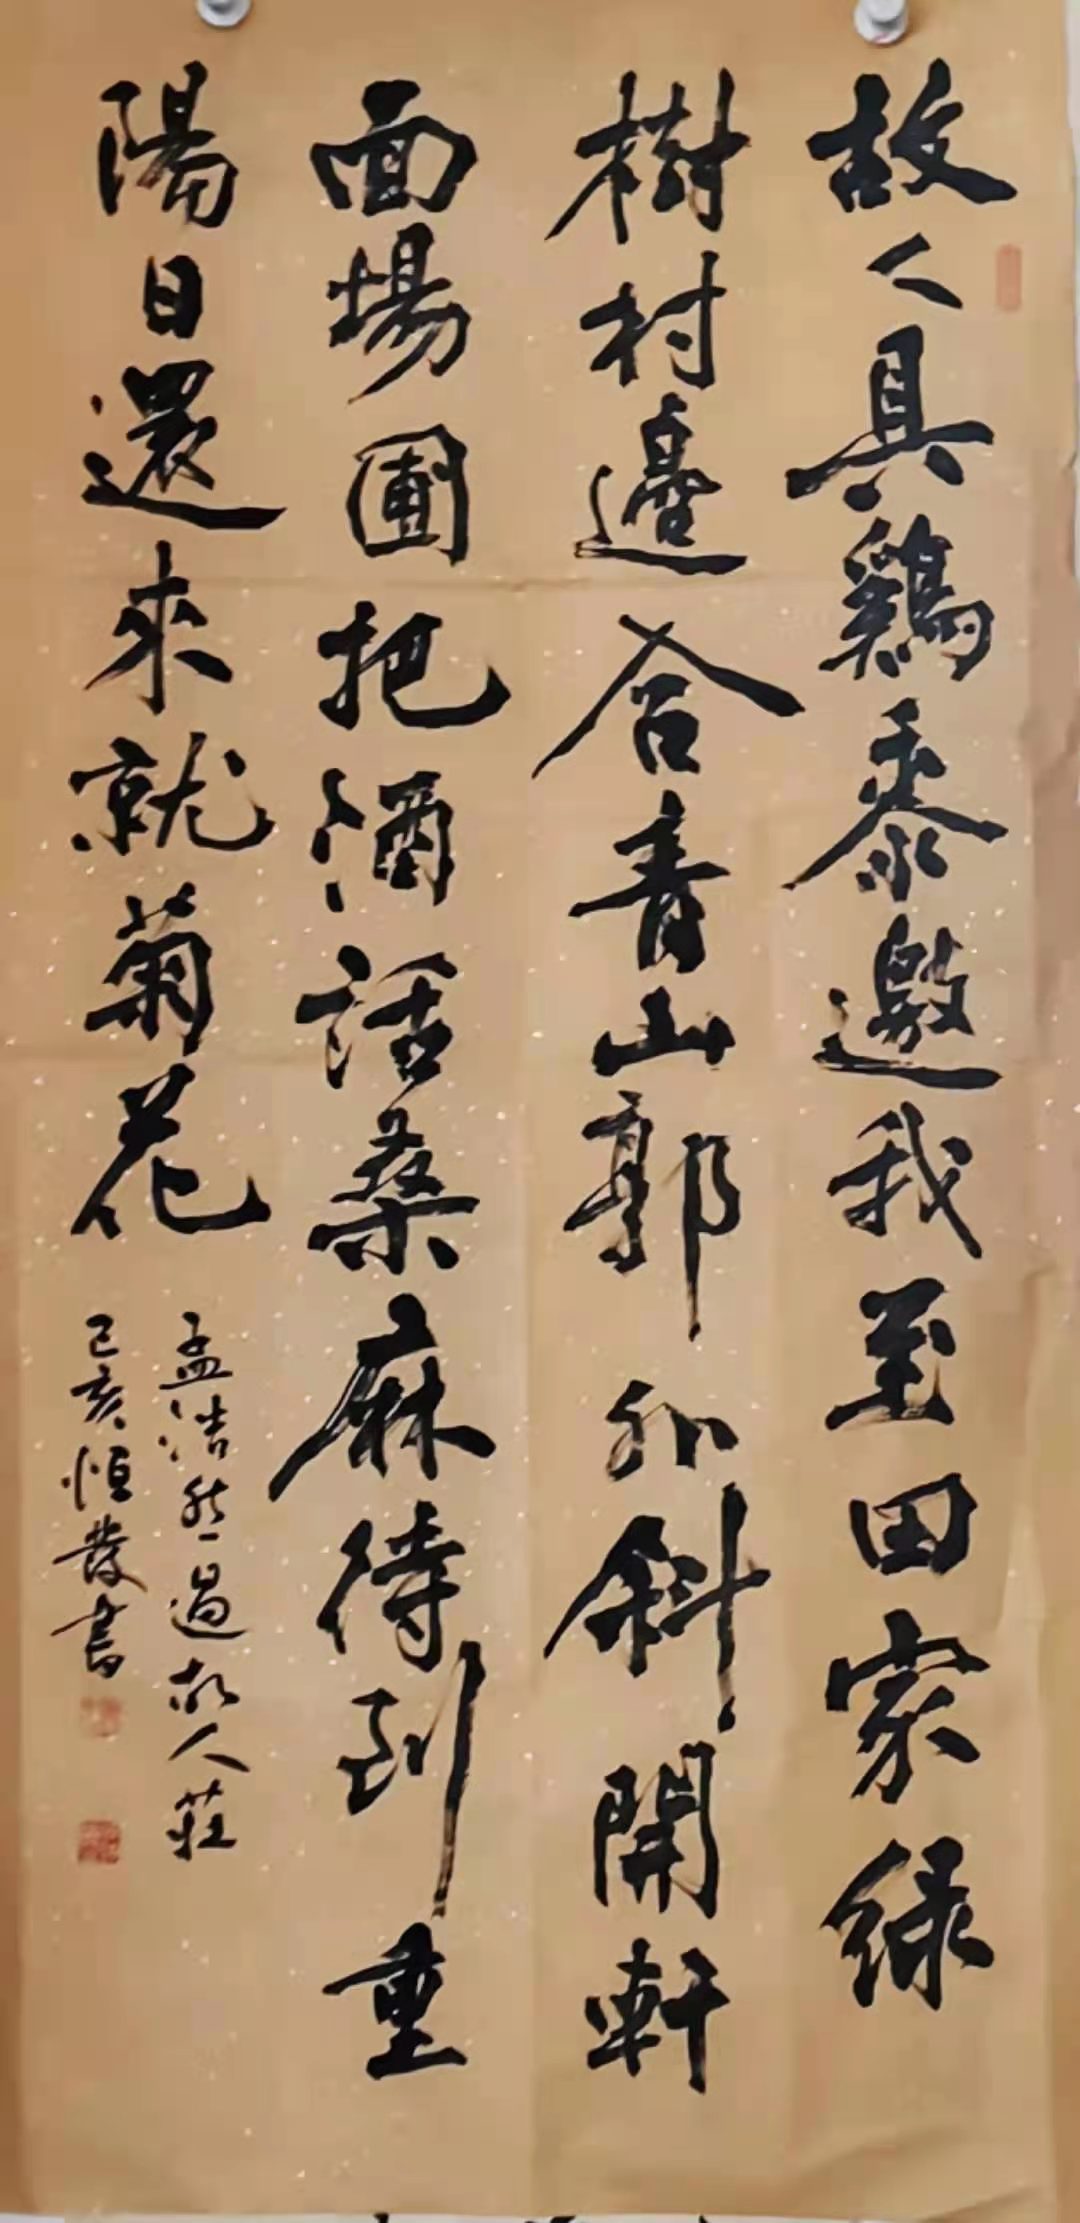 故人具鷄黍邀我至田家緑
樹村邊合青山郭外斜開軒
面場圃把酒話桑麻待到重
陽日還來就菊花
孟浩然過故人莊
己亥恒發書